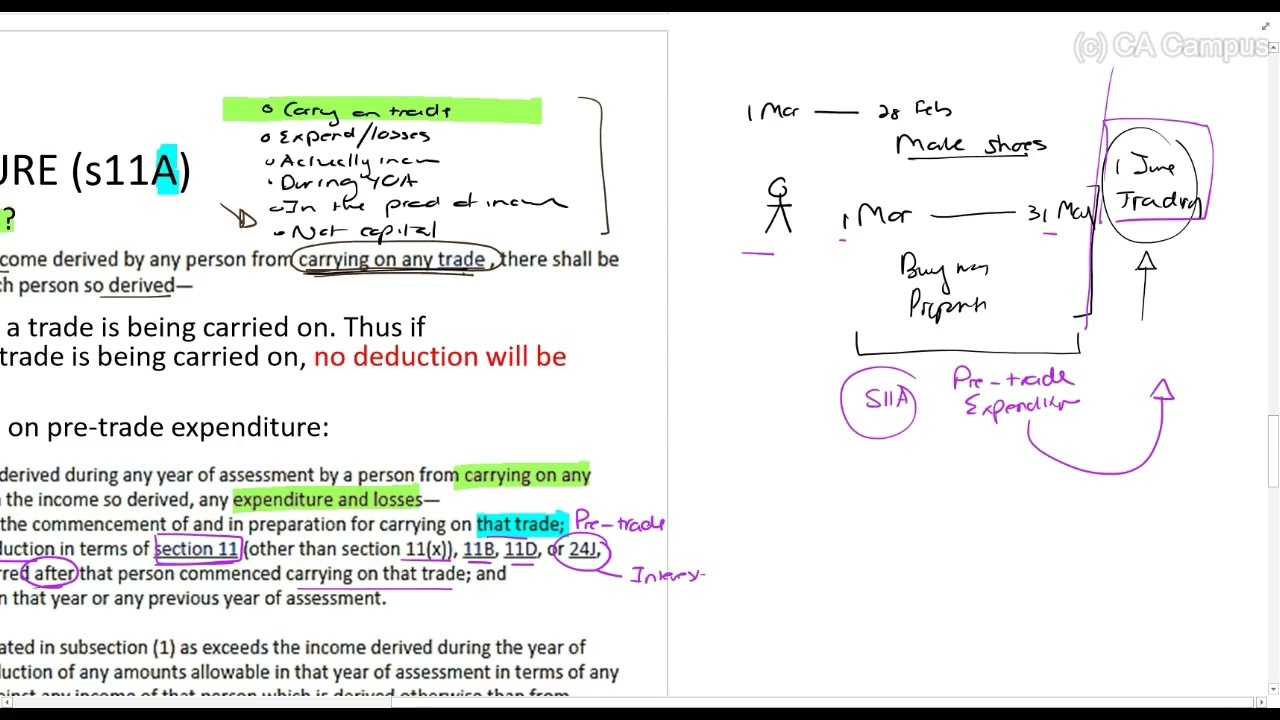 (c) CA Campus
o Carry on trade
o Expend/losses
o Actually incur
• During YOA
o In the prod of income
o Not capital
URE (s11A)
?
come derived by any person from carrying on any trade, there shall be
ch person so derived—
a trade is being carried on. Thus if
trade is being carried on, no deduction will be
on pre-trade expenditure:
derived during any year of assessment by a person from carrying on any
n the income so derived, any expenditure and losses—
the commencement of and in preparation for carrying on that trade; Pre-trade
duction in terms of section 11 (other than section 11(x)), 11B, 11D, or 24J,
rred after that person commenced carrying on that trade; and
Interes
n that year or any previous year of assessment.
ated in subsection (1) as exceeds the income derived during the year of
duction of any amounts allowable in that year of assessment in terms of any
ainst any income of that person which is derived otherwise than from
1 Mar — 28 Feb
Make shoes
1 June
Trading
1 Mar — 31 May
Buy
S11A
Pre-trade
Expenditure